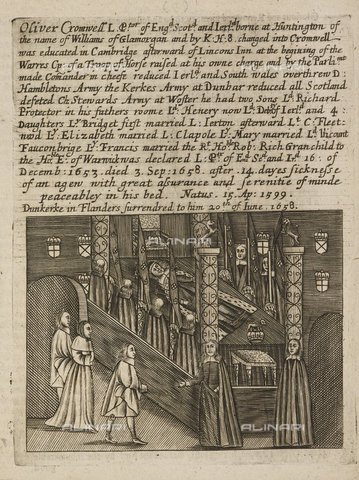 Oliver Cromwell L. Ptor of Engd Scotd and Ierld borne at Huntington of
the name of Williams of Glamorgan and by K. H. 8. changed into Cromwell
was educated in Cambridge afterward of Lincons Inn at the begining of the
Warres Cp: of a Troop of Horse raised at his owne charge and by the Parlimt
made Comander in cheefe reduced Ierld and South wales overthrew D:
Hambletons Army the Kerkes Army at Dunbar reduced all Scotland
defeted Ch: Stewards Army at Woster he had two Sons Ld. Richard
Protector in his fathers rome Ld. Henery now Ld. Deo. of Ierld and 4:
Daughters Ly. Bridget first married L: Ierton afterward Lt. C. Fleet:
nwd Ly. Elizabeth married L: Clapole Ly. Mary married Ld. Viscount
Fauconbrige Ly. Francis married the Rt. Hon. Rob: Rich Granchild to
the Ho: E: of Warwick was declared L: Ptor of End Scd and Ird 16: of
Decemb: 1653. died 3. Sep: 1658. after .14. dayes sicknesse
of an agew with great assurance and serenitie of minde
peaceabley in his bed. Natus. 15. Ap: 1599.
Dunkerke in Flanders surrendred to him 20th of Iune. 1658.
ALINARI
ALINARI
ALINARI
ALINARI